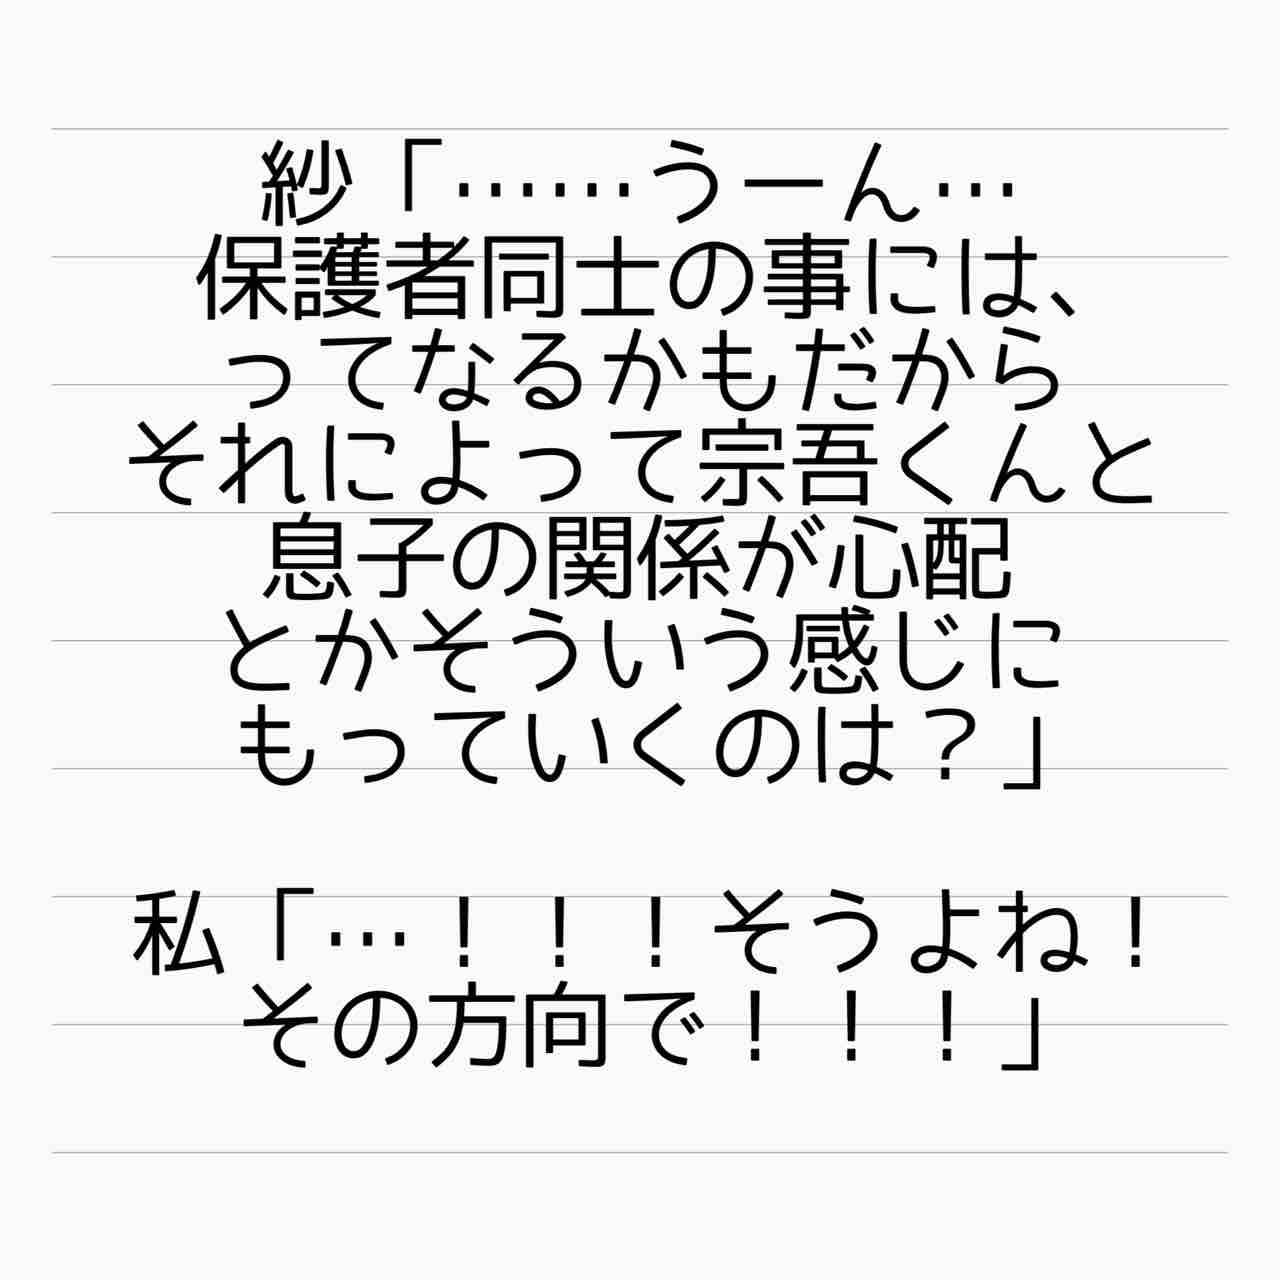 紗「……うーん…
保護者同士の事には、
ってなるかもだから
それによって宗吾くんと
息子の関係が心配
とかそういう感じに
もっていくのは？」
私「…！！！そうよね！
その方向で！！！」